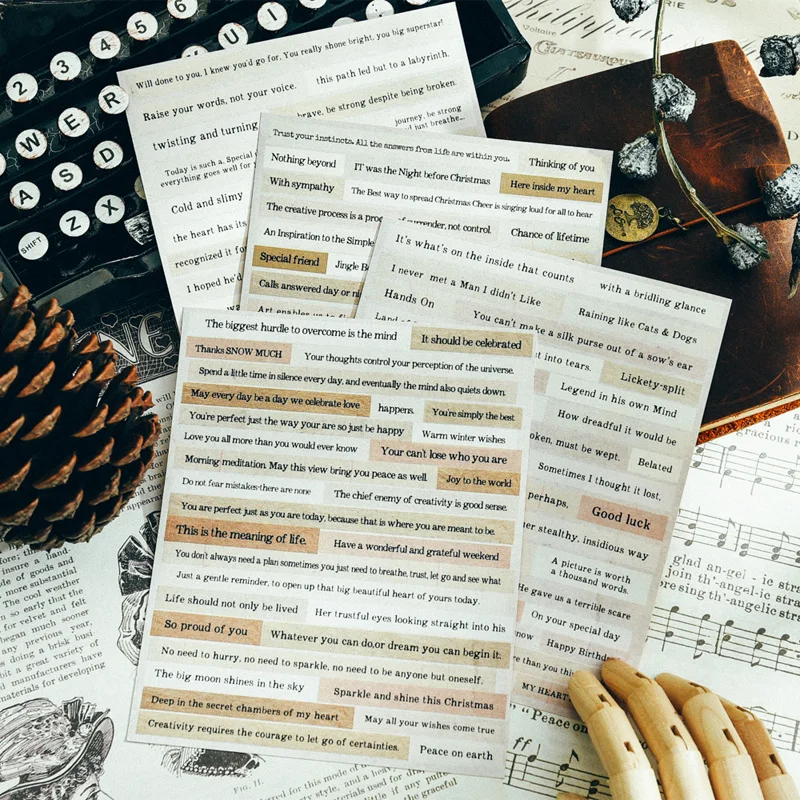 2 3 4 5 6
U I
W E R
A S D
Z X
SHIFT
Voltaire
Will done to you. I knew you'd go for. You really shone bright, you big superstar!
Raise your words, not your voice.
this path led but to a labyrinth.
twisting and turning
brave, be strong despite being broken.
journey, be strong
just breathe...
Today is such a. Special
everything goes well for
Cold and slimy
the heart has its
recognized it for
I hoped he'd
Trust your instincts. All the answers from life are within you.
Nothing beyond
IT was the Night before Christmas
Thinking of you
With sympathy
The Best way to spread Christmas Cheer is singing loud for all to hear
Here inside my heart
The creative process is a
surrender, not control
Chance of lifetime
An Inspiration to the Simple
Special friend
Jingle
Calls answered day or
Art enables us to
It's what's on the inside that counts
with a bridling glance
I never met a Man I didn't Like
Raining like Cats & Dogs
Hands On
You can't make a silk purse out of a sow's ear
into tears.
Lickety-split
Legend in his own Mind
How dreadful it would be
must be wept.
Belated
Sometimes I thought it lost,
perhaps,
Good luck
stealthy, insidious way
A picture is worth
a thousand words.
He gave us a terrible scare
On your special day
Happy
than you
MY HEART
The biggest hurdle to overcome is the mind
It should be celebrated
Thanks SNOW MUCH
Your thoughts control your perception of the universe.
Spend a little time in silence every day, and eventually the mind also quiets down.
May every day be a day we celebrate love
happens.
You're simply the best
You're perfect just the way your are so just be happy
Warm winter wishes
Love you all more than you would ever know
Your can't lose who you are
Morning meditation. May this view bring you peace as well.
Joy to the world
Do not fear mistakes-there are none
The chief enemy of creativity is good sense.
You are perfect just as you are today, because that is where you are meant to be.
This is the meaning of life.
Have a wonderful and grateful weekend
You don't always need a plan sometimes you just need to breathe, trust, let go and see what
Just a gentle reminder, to open up that big beautiful heart of yours today.
Life should not only be lived
Her trustful eyes looking straight into his
So proud of you
Whatever you can do,or dream you can begin it:
No need to hurry, no need to sparkle, no need to be anyone but oneself.
The big moon shines in the sky
Sparkle and shine this Christmas
Deep in the secret chambers of my heart
May all your wishes come true
Creativity requires the courage to let go of certainties.
Peace on earth
glad an-gel - ic
join th'-angel-ic
sing th'-angelic
" "Peace on
ff
FIG. II.